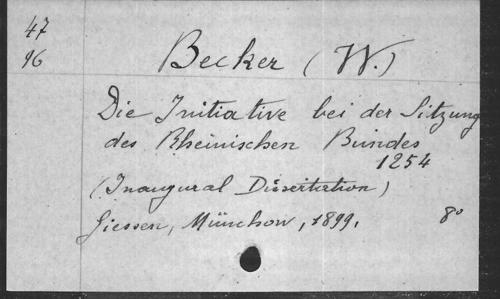 47
96
Becker (W.)
Die Initiative bei der Sitzung
des Rheinischen Bundes
1254
(Inaugural Dissertation)
Giessen, Münchow, 1899.
8°